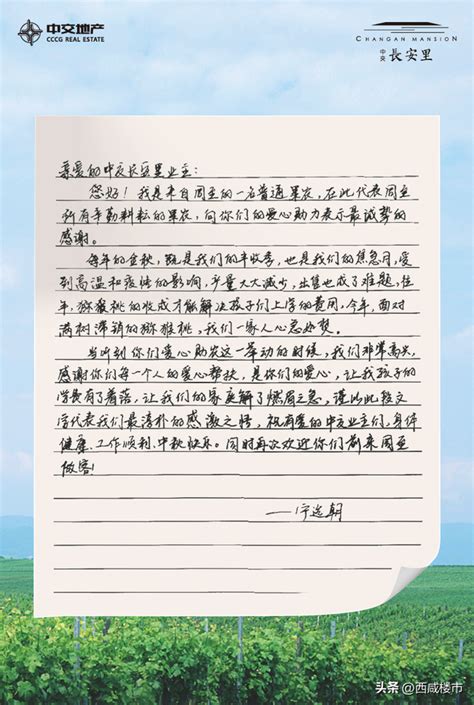 中交地产
CCCG REAL ESTATE
CHANGAN MANSION
中交 長安里
亲爱的中交长安里业主:
您好!我是来自周至的一名普通果农,在此代表周至
所有辛勤耕耘的果农,向你们的爱心助力表示最诚挚的
感谢。
每年的金秋,既是我们的丰收季,也是我们的焦急月,受
到高温和疫情的影响,产量大大减少,出售也成了难题,往
年,猕猴桃的收成才能解决孩子们上学的费用,今年,面对
满树滞销的猕猴桃,我们一家人心急如焚。
当听到你们爱心助农这一举动的时候,我们非常高兴,
感谢你们每一个人的爱心帮扶,是你们的爱心,让我孩子的
学费有了着落,让我们的家庭解了燃眉之急,谨以此段文
字代表我们最淳朴的感激之情,祝有爱的中交业主们,身体
健康、工作顺利、中秋快乐。同时再次欢迎你们前来周至
做客!
头条 @西咸楼市